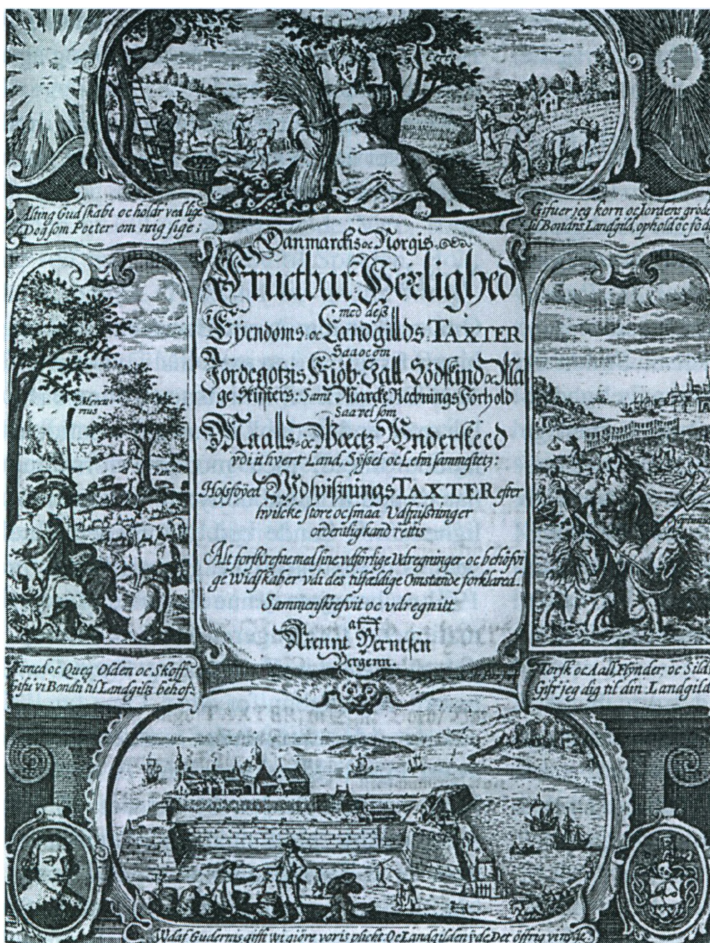 Alting Gud skabt oc holdr ved lige
Dog som Poeter om mig sige:
Gifuer jeg korn oc Jordens gröde
til Bondns Landgild, ophold oc föde
Danmarckis oc Norgis
Fructbar Herlighed
med deß
Eyendoms oc Landgillds TAXTER
Saa oc om
Jordegotzis Kiöb: Fall Södskind oc Ma
ge Skiffters: Samt Marcke Rechnings Forhold
Saa vel som
Maalls oc Wectz Wnderskeed
vdi it hvert Land, Sÿssel oc Lehn sammestetz:
Hosföÿed Wdspißnings TAXTER efter
hvilcke store oc smaa Udspiißninger
ordentlig kand rettis
Alt forskrefne med sine vdförlige Udregninger oc behöfvi
ge Widskaber vdi des tilfældige Omstande forklared.
Sammenskrefvit oc vdregnitt
aff
Arennt Berntsen
Bergenn.
Mercurius
Neptunus
Faared oc Queg Olden oc Skoff
Gifu vi Bondn til Landgiltz behof:
Torsk oc Aall, Flÿnder, oc Sild
Gifr jeg dig til din Landgild
Wdaf Gudernis gifft wi giöre voris plickt. Oc Landgilden ÿde, Det öffrig